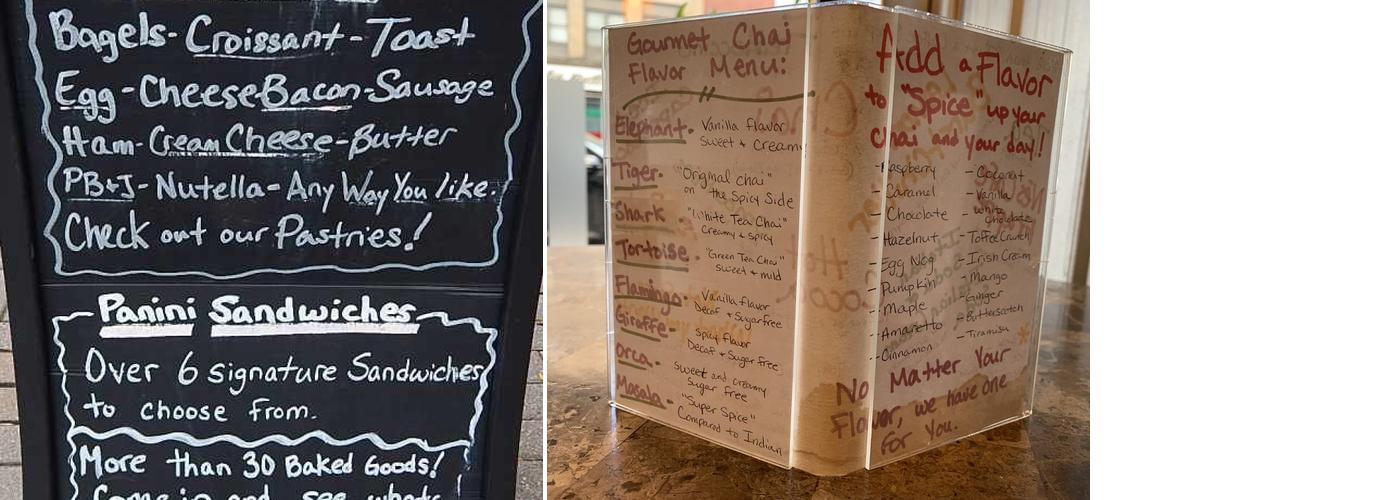 Bagels-Croissant-Toast
Egg-Cheese-Bacon-Sausage
Ham-Cream Cheese-Butter
PB&J-Nutella-Any Way You like.
Check out our Pastries!
Panini Sandwiches
Over 6 signature Sandwiches
to choose from.
More than 30 Baked Goods!
Come in and see what's
Gourmet Chai
Flavor Menu:
Elephant. Vanilla flavor
Sweet + Creamy
Tiger. "Original chai"
on the Spicy Side
Shark "White Tea Chai"
Creamy + Spicy
Tortoise. "Green Tea Chai"
Sweet + mild
Flamingo. Vanilla flavor
Decaf + Sugarfree
Giraffe- Spicy flavor
Decaf + Sugar free
Orca. sweet and creamy
Sugar free
Masala. "Super Spice"
Compared to Indian
Add a Flavor
to "Spice" up your
chai and your day!
-Raspberry
-Caramel
-Chocolate
-Hazelnut
-Egg Nog
-Pumpkin
-Maple
-Amaretto
-Cinnamon
-Coconut
-Vanilla
-White
Chocolate
-Toffee Crunch
-Irish Cream
-Mango
-Ginger
-Butterscotch
-Tiramisu
No Matter Your
Flavor, we have one
for You.